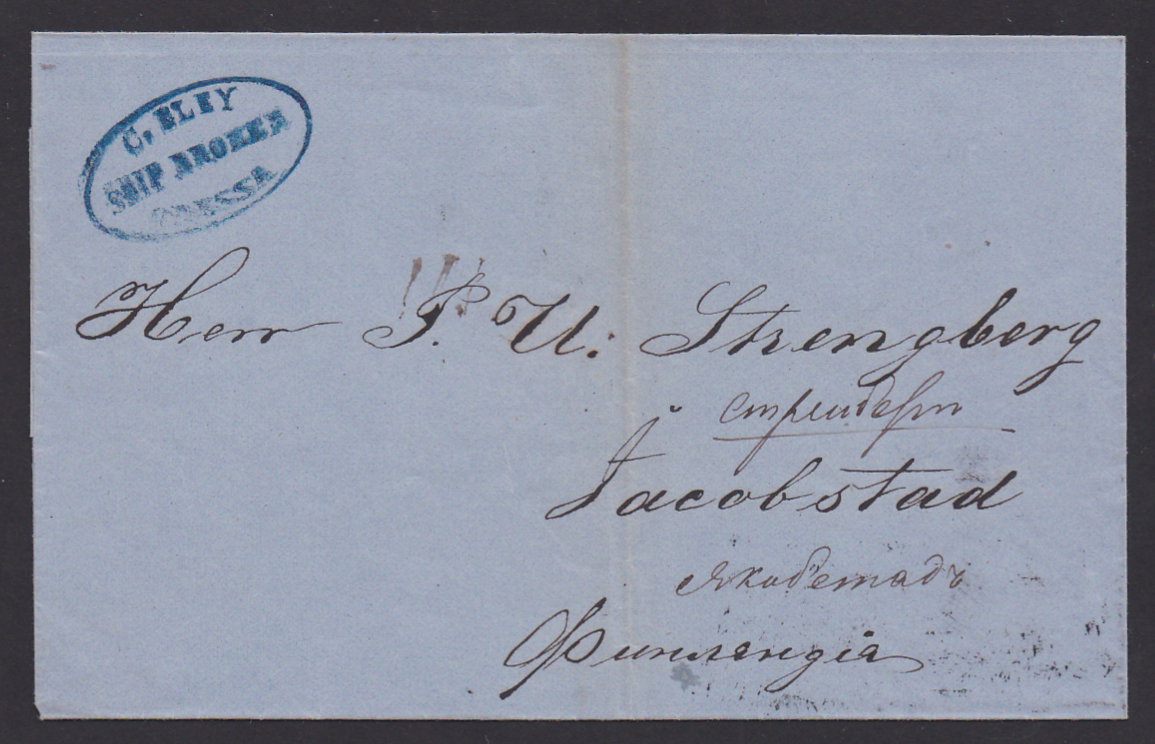 C. ELEY
SHIP BROKER
ODESSA
Herr P. U. Strengberg
Jacobstad
Якобстадъ
Финляндія